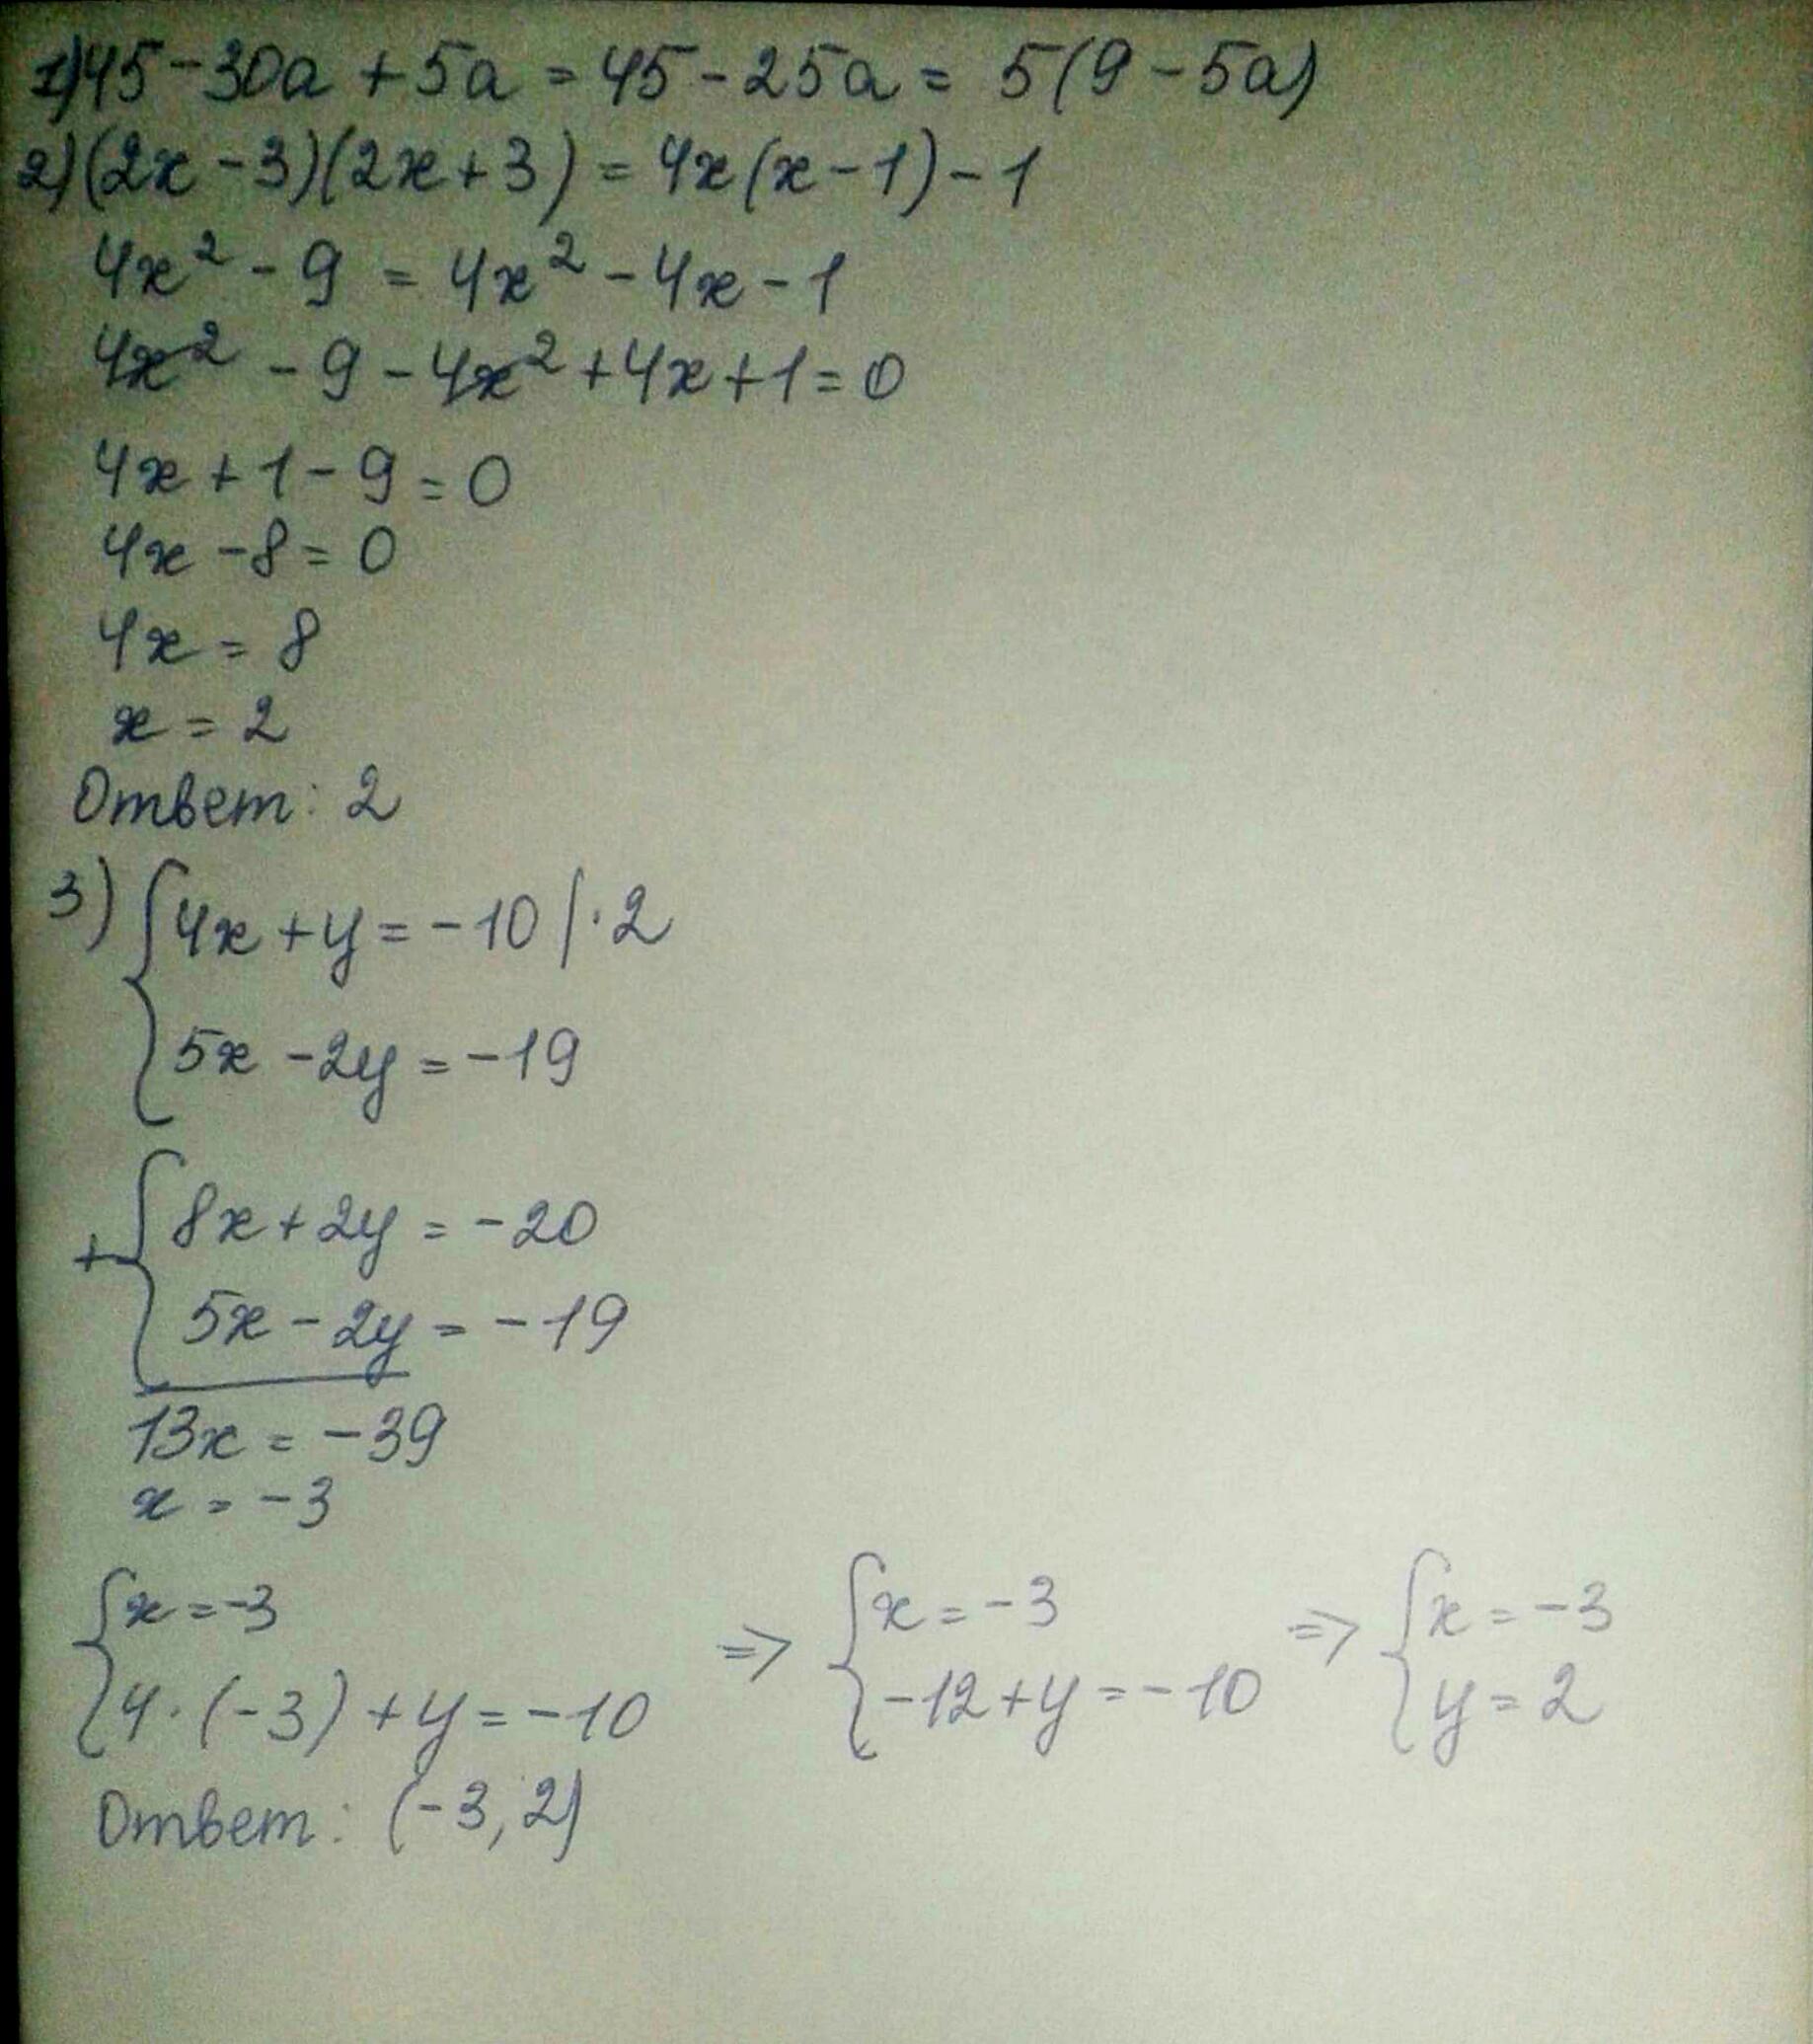 1) 45 - 30a + 5a = 45 - 25a = 5(9 - 5a)
2) (2x - 3)(2x + 3) = 4x(x - 1) - 1
4x² - 9 = 4x² - 4x - 1
4x² - 9 - 4x² + 4x + 1 = 0
4x + 1 - 9 = 0
4x - 8 = 0
4x = 8
x = 2
Ответ: 2
3) { 4x + y = -10 | · 2
5x - 2y = -19
+ { 8x + 2y = -20
5x - 2y = -19
13x = -39
x = -3
{ x = -3 => { x = -3 => { x = -3
4 · (-3) + y = -10 -12 + y = -10 y = 2
Ответ: (-3, 2)